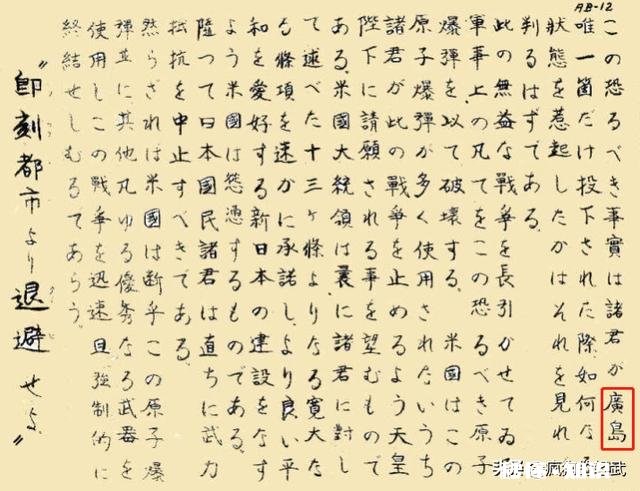 AB-12
この恐るべき事實は諸君が廣島
唯一箇だけ投下された際如何なる
狀態を惹起したかはそれを見れ
判るはずである
此の無益な戰爭を長引かせてゐる
軍事上の凡てをこの恐るべき原子
爆彈を以て破壞する 米國はこの
原子爆彈が多く使用されないうち
諸君が此の戰爭を止めるよう天皇
陛下に請願される事を望むもので
ある 米國大統領は曩に諸君に對し
て述べた十三ヶ條よりなる寬大な
る條項を速かに承諾しより良い平
和を愛好する新日本の建設をなす
よう米國は慫慂するものである
隨つて日本國民諸君は直ちに武力
抵抗を中止すべきである
然らざれば米國は斷乎この原子爆
彈並に其他凡ゆる優秀なる武器を
使用しこの戰爭を迅速且强制的に
終結せしむるであらう
"卽刻都市より退避せよ"